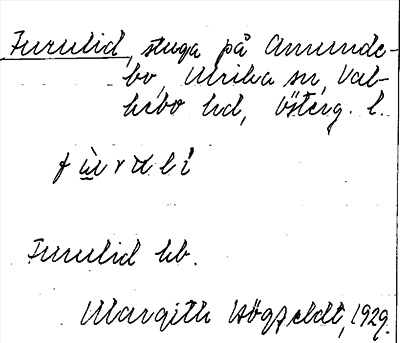 Furulid, stuga på Amunde-
bo, Ulrika sn, Val-
kebo hd, Österg. l.
fu̱̇rʉlí
Furulid hb.
Margith Högfeldt, 1929.